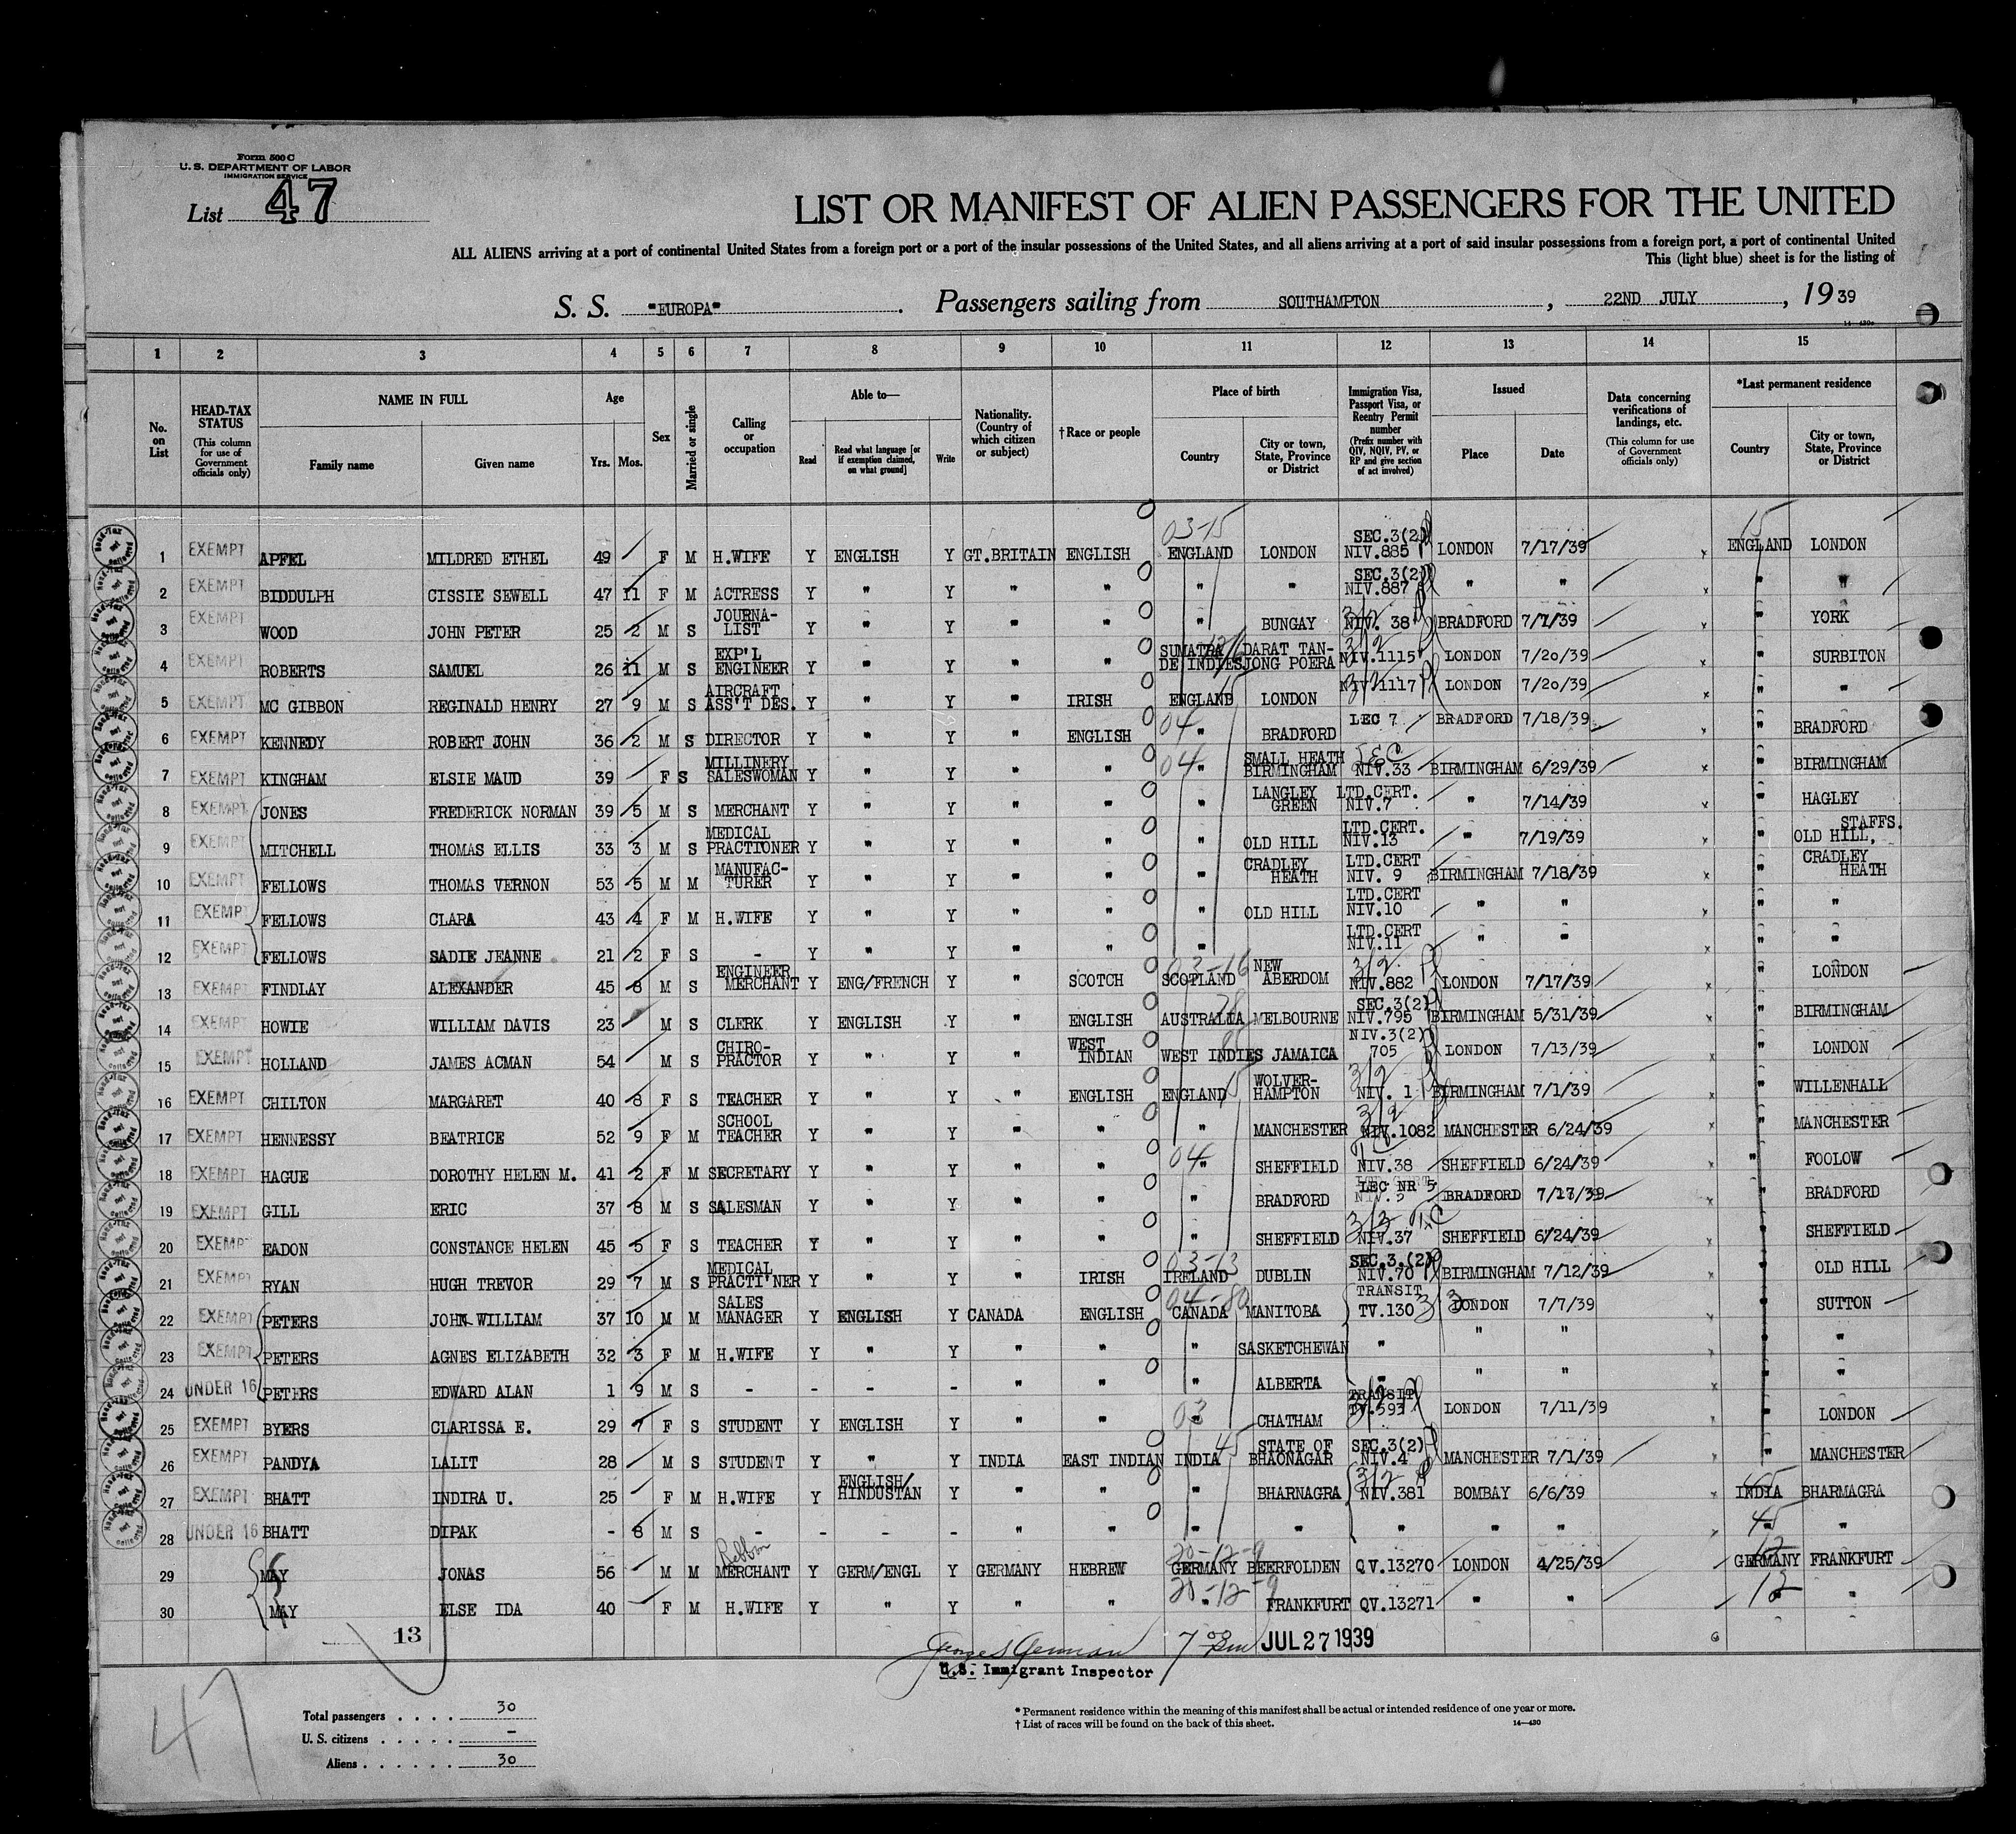 Form 500 C
U. S. DEPARTMENT OF LABOR
IMMIGRATION SERVICE
List 47
LIST OR MANIFEST OF ALIEN PASSENGERS FOR THE UNITED
ALL ALIENS arriving at a port of continental United States from a foreign port or a port of the insular possessions of the United States, and all aliens arriving at a port of said insular possessions from a foreign port, a port of continental United
This (light blue) sheet is for the listing of
S. S. "EUROPA". Passengers sailing from SOUTHAMPTON, 22ND JULY, 1939
1 2 3 4 5 6 7 8 9 10 11 12 13 14 15
No. on List
HEAD-TAX STATUS (This column for use of Government officials only)
NAME IN FULL Family name Given name
Age Yrs. Mos.
Sex
Married or single
Calling or occupation
Able to— Read Read what language [or if exemption claimed, on what ground] Write
Nationality. (Country of which citizen or subject)
†Race or people
Place of birth Country City or town, State, Province or District
Immigration Visa, Passport Visa, or Reentry Permit number (Prefix number with QIV, NQIV, PV, or RP and give section of act involved)
Issued Place Date
Data concerning verifications of landings, etc. (This column for use of Government officials only)
*Last permanent residence Country City or town, State, Province or District
1 EXEMPT APFEL MILDRED ETHEL 49 F M H.WIFE Y ENGLISH Y GT.BRITAIN ENGLISH 03-15 ENGLAND LONDON SEC.3(2) NIV.885 LONDON 7/17/39 x 15 ENGLAND LONDON
2 EXEMPT BIDDULPH CISSIE SEWELL 47 11 F M ACTRESS Y " Y " " " " SEC.3(2) NIV.887 " " x " "
3 EXEMPT WOOD JOHN PETER 25 2 M S JOURNA-LIST Y " Y " " " BUNGAY 3/2 NIV. 38 BRADFORD 7/1/39 x " YORK
4 EXEMPT ROBERTS SAMUEL 26 11 M S EXP'L ENGINEER Y " Y " " SUMATRA DE INDIES DARAT TAN-JONG POERA 3/2 NIV.1115 LONDON 7/20/39 x " SURBITON
5 EXEMPT MC GIBBON REGINALD HENRY 27 9 M S AIRCRAFT ASS'T DES. Y " Y " IRISH ENGLAND LONDON NIV.1117 LONDON 7/20/39 x " "
6 EXEMPT KENNEDY ROBERT JOHN 36 2 M S DIRECTOR Y " Y " ENGLISH 04 " BRADFORD LEC 7 BRADFORD 7/18/39 x " BRADFORD
7 EXEMPT KINGHAM ELSIE MAUD 39 F S MILLINERY SALESWOMAN Y " Y " " 04 " SMALL HEATH BIRMINGHAM NIV.33 BIRMINGHAM 6/29/39 x " BIRMINGHAM
8 EXEMPT JONES FREDERICK NORMAN 39 5 M S MERCHANT Y " Y " " " LANGLEY GREEN LTD.CERT. NIV.7 " 7/14/39 x " HAGLEY
9 EXEMPT MITCHELL THOMAS ELLIS 33 3 M S MEDICAL PRACTIONER Y " Y " " " OLD HILL LTD.CERT. NIV.13 " 7/19/39 x " STAFFS. OLD HILL,
10 EXEMPT FELLOWS THOMAS VERNON 53 5 M M MANUFAC-TURER Y " Y " " " CRADLEY HEATH LTD.CERT NIV. 9 BIRMINGHAM 7/18/39 x " CRADLEY HEATH
11 EXEMPT FELLOWS CLARA 43 4 F M H.WIFE Y " Y " " " OLD HILL LTD.CERT NIV.10 " " x " "
12 EXEMPT FELLOWS SADIE JEANNE 21 2 F S - Y " Y " " " LTD.CERT NIV.11 " " x " "
13 EXEMPT FINDLAY ALEXANDER 45 8 M S ENGINEER MERCHANT Y ENG/FRENCH Y " SCOTCH 03-16 SCOTLAND NEW ABERDOM 3/2 NIV.882 LONDON 7/17/39 x " LONDON
14 EXEMPT HOWIE WILLIAM DAVIS 23 M S CLERK Y ENGLISH Y " ENGLISH AUSTRALIA MELBOURNE SEC.3(2) NIV.795 BIRMINGHAM 5/31/39 x " BIRMINGHAM
15 EXEMPT HOLLAND JAMES ACMAN 54 M S CHIRO-PRACTOR Y " Y " WEST INDIAN WEST INDIES JAMAICA NIV.3(2) 705 LONDON 7/13/39 x " LONDON
16 EXEMPT CHILTON MARGARET 40 8 F S TEACHER Y " Y " ENGLISH ENGLAND 15 WOLVER-HAMPTON 3/2 NIV. 1 BIRMINGHAM 7/1/39 x " WILLENHALL
17 EXEMPT HENNESSY BEATRICE 52 9 F M SCHOOL TEACHER Y " Y " " " MANCHESTER 3/2 NIV.1082 MANCHESTER 6/24/39 x " MANCHESTER
18 EXEMPT HAGUE DOROTHY HELEN M. 41 2 F M SECRETARY Y " Y " " 04 " SHEFFIELD NIV.38 SHEFFIELD 6/24/39 x " FOOLOW
19 EXEMPT GILL ERIC 37 8 M S SALESMAN Y " Y " " " BRADFORD LEC NR 5 BRADFORD 7/17/39 x " BRADFORD
20 EXEMPT EADON CONSTANCE HELEN 45 5 F S TEACHER Y " Y " " " SHEFFIELD NIV.37 SHEFFIELD 6/24/39 x " SHEFFIELD
21 EXEMPT RYAN HUGH TREVOR 29 7 M S MEDICAL PRACTI'NER Y " Y " IRISH 03-13 IRELAND DUBLIN SEC.3.(2) NIV.70 BIRMINGHAM 7/12/39 x " OLD HILL
22 EXEMPT PETERS JOHN WILLIAM 37 10 M M SALES MANAGER Y ENGLISH Y CANADA ENGLISH 04-80 CANADA MANITOBA TRANSIT TV.130 LONDON 7/7/39 x " SUTTON
23 EXEMPT PETERS AGNES ELIZABETH 32 3 F M H.WIFE Y " Y " " " SASKETCHEWAN " " " x " "
24 UNDER 16 PETERS EDWARD ALAN 1 9 M S - - - - " " " ALBERTA " " " x " "
25 EXEMPT BYERS CLARISSA E. 29 7 F S STUDENT Y ENGLISH Y " " 03 " CHATHAM TRANSIT TV.593 LONDON 7/11/39 " LONDON
26 EXEMPT PANDYA LALIT 28 M S STUDENT Y " Y INDIA EAST INDIAN INDIA 45 STATE OF BHAONAGAR SEC.3(2) NIV.4 MANCHESTER 7/1/39 x " MANCHESTER
27 EXEMPT BHATT INDIRA U. 25 F M H.WIFE Y ENGLISH/HINDUSTAN Y " " " BHARNAGRA 3/2 NIV.381 BOMBAY 6/6/39 x 45 INDIA BHARMAGRA
28 UNDER 16 BHATT DIPAK - 8 M S - - - - " " " " " " " x 45 " "
29 MAY JONAS 56 M M MERCHANT Y GERM/ENGL Y GERMANY HEBREW 20-12-9 GERMANY BEERFOLDEN QV.13270 LONDON 4/25/39 12 GERMANY FRANKFURT
30 MAY ELSE IDA 40 F M H.WIFE Y " Y " " 20-12-9 " FRANKFURT QV.13271 " " 12 " "
13
7 00 pm JUL 27 1939
U.S. Immigrant Inspector
47
Total passengers . . . . 30
U. S. citizens . . . . . –
Aliens . . . . . . 30
* Permanent residence within the meaning of this manifest shall be actual or intended residence of one year or more.
† List of races will be found on the back of this sheet.
14—430